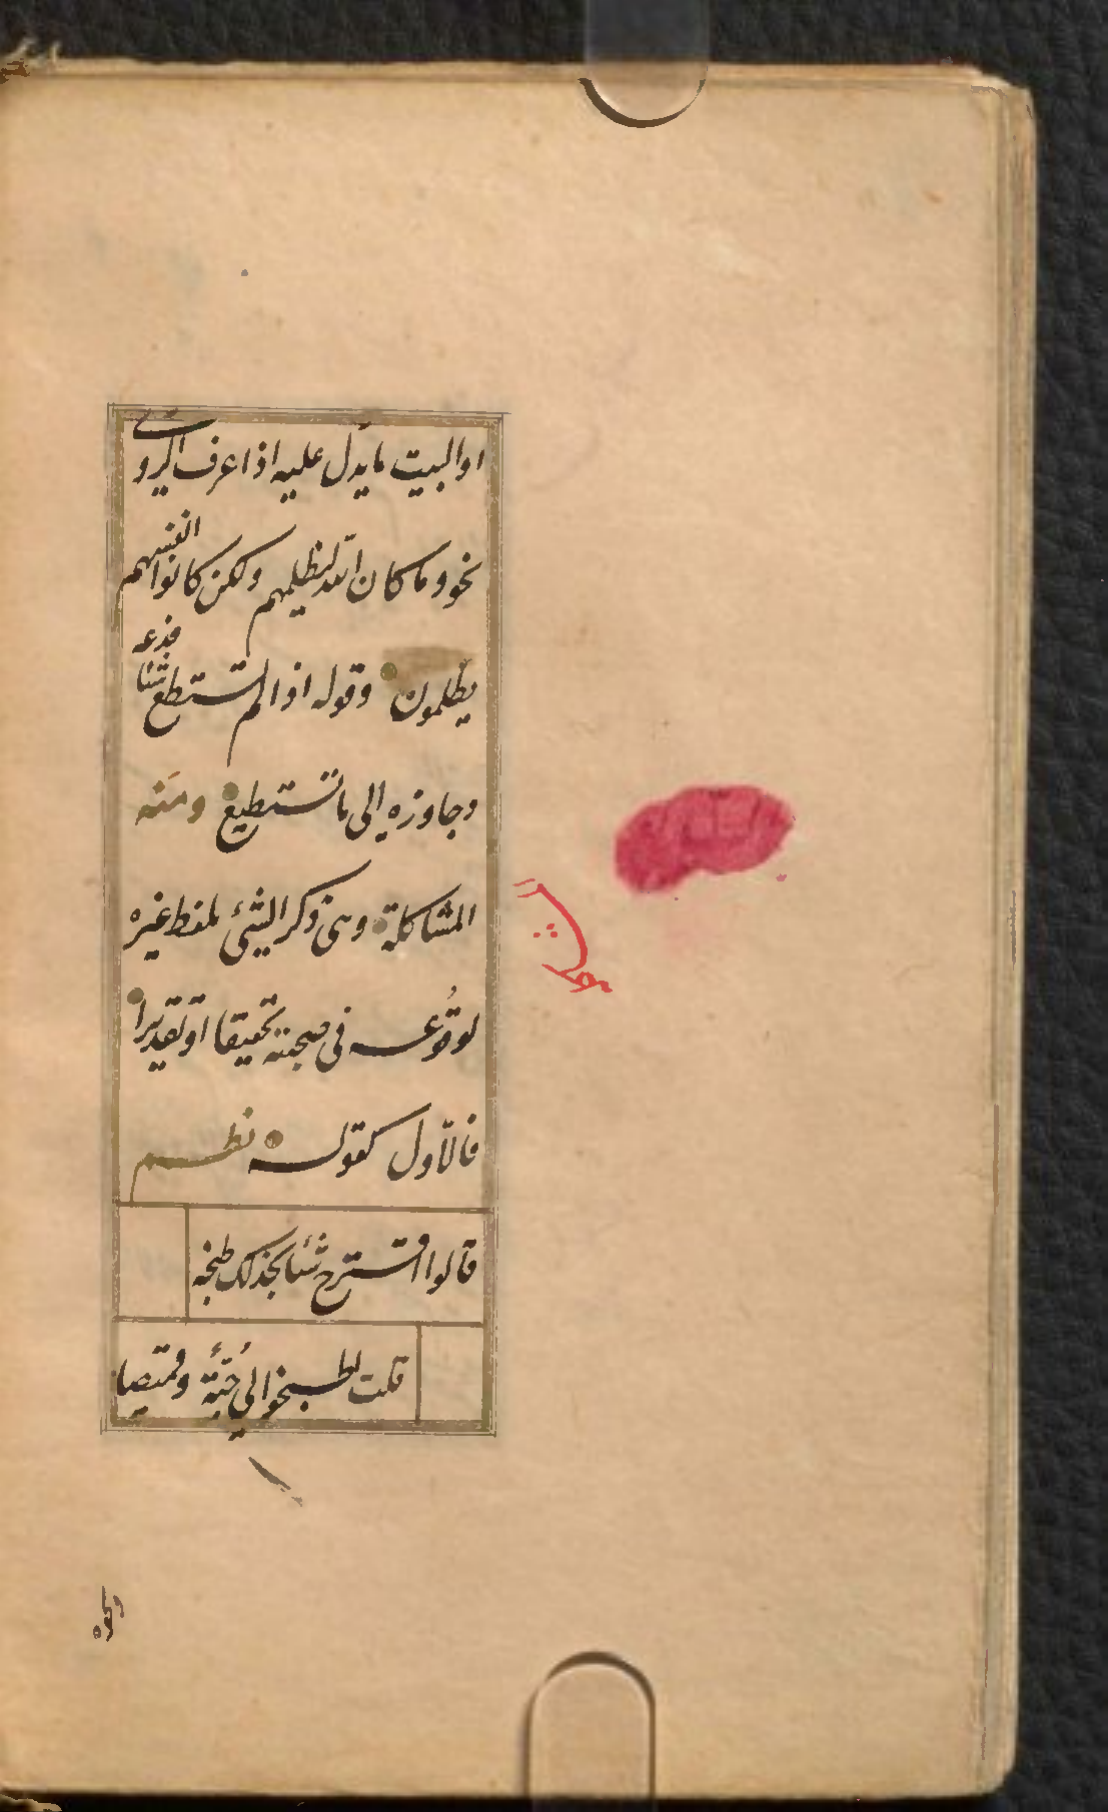 او البيت ما يدل عليه اذا عرف الروى
نحو وما كان الله ليظلمهم ولكن كانوا انفسهم
يظلمون وقوله اذا لم تستطع شيئا فدعه
وجاوزه الى ما تستطيع ومنه
المشاكلة وهى ذكر الشئ بلفظ غيره
لوقُوعه فى صحبته تحقيقا او تقديرا
فالاول كقوله نظم
قالوا اقترح شيئا نجد لك طبخه
قلت اطبخوا لي جُبّةً وقميصا
ونحوه